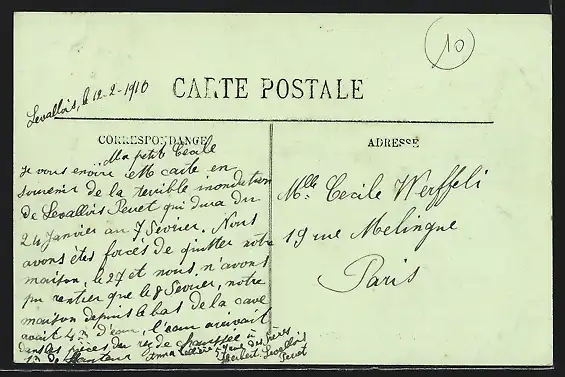 10
Levallois, le 12-2-1910
CARTE POSTALE
CORRESPONDANCE
ADRESSE
Ma petite Cécile
Je vous envoie cette carte en
souvenir de la terrible inondation
de Levallois Perret qui dura du
24 Janvier au 7 Sevrier. Nous
avons étés forcés de quitter notre
maison, le 27 et nous n'avons
pu rentrer que le 8 Sevrier, notre
maison depuis le bas de la cave
avait 4 m d'eau, l'eau arrivait
dans les pièces du rez de chaussée à
1m de hauteur
Anna rue des frères
Herbert Levallois
Perret
Mlle Cecile Werffeli
19 rue Melingue
Paris